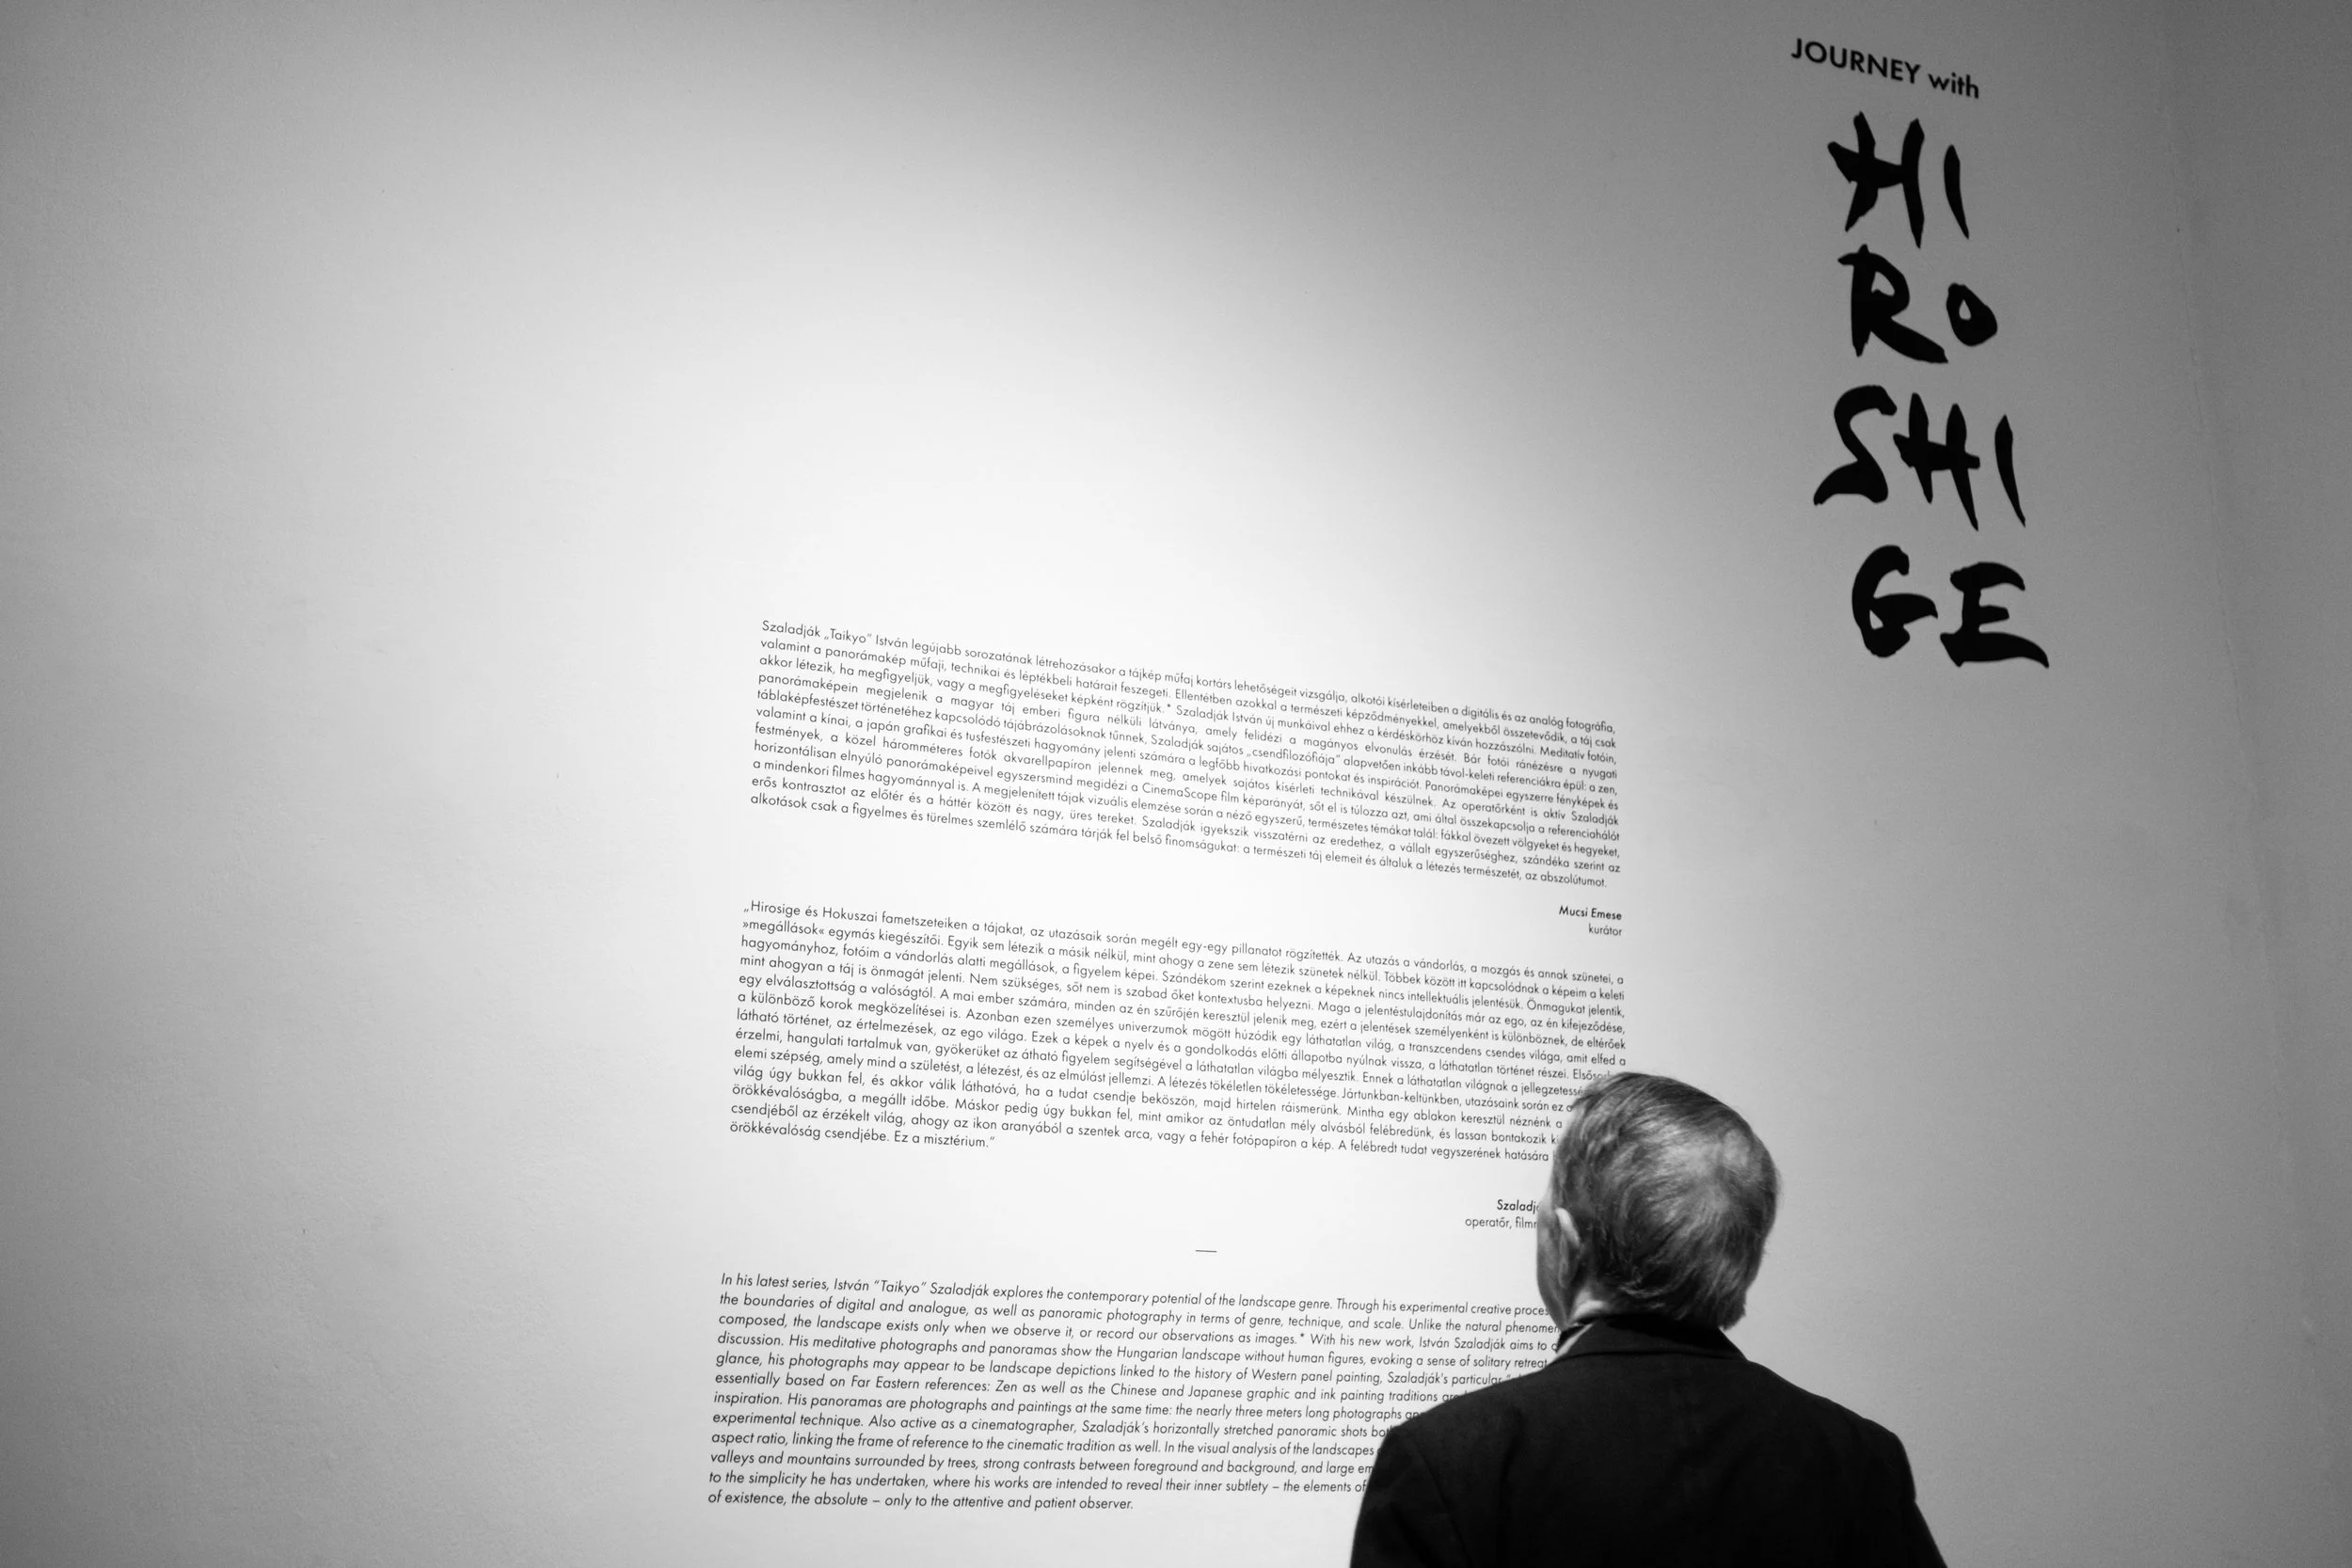 JOURNEY with
HI
RO
SHI
GE
Szaladják „Taikyo” István legújabb sorozatának létrehozásakor a tájkép műfaj kortárs lehetőségeit vizsgálja, alkotói kísérleteiben a digitális és az analóg fotográfia,
valamint a panorámakép műfaji, technikai és léptékbeli határait feszegeti. Ellentétben azokkal a természeti képződményekkel, amelyekből összetevődik, a táj csak
akkor létezik, ha megfigyeljük, vagy a megfigyeléseket képként rögzítjük.* Szaladják István új munkáival ehhez a kérdéskörhöz kíván hozzászólni. Meditatív fotóin,
panorámaképein megjelenik a magyar táj emberi figura nélküli látványa, amely felidézi a magányos elvonulás érzését. Bár fotói ránézésre a nyugati
táblaképfestészet történetéhez kapcsolódó tájábrázolásoknak tűnnek, Szaladják sajátos „csendfilozófiája” alapvetően inkább távol-keleti referenciákra épül: a zen,
valamint a kínai, a japán grafikai és tusfestészeti hagyomány jelenti számára a legfőbb hivatkozási pontokat és inspirációt. Panorámaképei egyszerre fényképek és
festmények, a közel háromméteres fotók akvarellpapíron jelennek meg, amelyek sajátos kísérleti technikával készülnek. Az operatőrként is aktív Szaladják
horizontálisan elnyúló panorámaképeivel egyszersmind megidézi a CinemaScope film képarányát, sőt el is túlozza azt, ami által összekapcsolja a referenciahálót
a mindenkori filmes hagyománnyal is. A megjelenített tájak vizuális elemzése során a néző egyszerű, természetes témákat talál: fákkal övezett völgyeket és hegyeket,
erős kontrasztot az előtér és a háttér között és nagy, üres tereket. Szaladják igyekszik visszatérni az eredethez, a vállalt egyszerűséghez, szándéka szerint az
alkotások csak a figyelmes és türelmes szemlélő számára tárják fel belső finomságukat: a természeti táj elemeit és általuk a létezés természetét, az abszolútumot.
Mucsi Emese
kurátor
„Hirosige és Hokuszai fametszeteiken a tájakat, az utazásaik során megélt egy-egy pillanatot rögzítették. Az utazás a vándorlás, a mozgás és annak szünetei, a
»megállások« egymás kiegészítői. Egyik sem létezik a másik nélkül, mint ahogy a zene sem létezik szünetek nélkül. Többek között itt kapcsolódnak a képeim a keleti
hagyományhoz, fotóim a vándorlás alatti megállások, a figyelem képei. Szándékom szerint ezeknek a képeknek nincs intellektuális jelentésük. Önmagukat jelentik,
mint ahogyan a táj is önmagát jelenti. Nem szükséges, sőt nem is szabad őket kontextusba helyezni. Maga a jelentéstulajdonítás már az ego, az én kifejeződése,
egy elválasztottság a valóságtól. A mai ember számára, minden az én szűrőjén keresztül jelenik meg, ezért a jelentések személyenként is különböznek, de eltérőek
a különböző korok megközelítései is. Azonban ezen személyes univerzumok mögött húzódik egy láthatatlan világ, a transzcendens csendes világa, amit elfed a
látható történet, az értelmezések, az ego világa. Ezek a képek a nyelv és a gondolkodás előtti állapotba nyúlnak vissza, a láthatatlan történet részei.
érzelmi, hangulati tartalmuk van, gyökerüket az átható figyelem segítségével a láthatatlan világba mélyesztik. Ennek a láthatatlan világnak a
elemi szépség, amely mind a születést, a létezést, és az elmúlást jellemzi. A létezés tökéletlen tökéletessége. Jártunkban-keltünkben, utazásaink során ez
világ úgy bukkan fel, és akkor válik láthatóvá, ha a tudat csendje beköszön, majd hirtelen ráismerünk. Mintha egy ablakon keresztül néznénk a
örökkévalóságba, a megállt időbe. Máskor pedig úgy bukkan fel, mint amikor az öntudatlan mély alvásból felébredünk, és lassan bontakozik
csendjéből az érzékelt világ, ahogy az ikon aranyából a szentek arca, vagy a fehér fotópapíron a kép. A felébredt tudat vegyszerének hatására
örökkévalóság csendjébe. Ez a misztérium.”
operatőr,
—
In his latest series, István “Taikyo” Szaladják explores the contemporary potential of the landscape genre. Through his experimental creative
the boundaries of digital and analogue, as well as panoramic photography in terms of genre, technique, and scale. Unlike the natural
composed, the landscape exists only when we observe it, or record our observations as images.* With his new work, István Szaladják aims to
discussion. His meditative photographs and panoramas show the Hungarian landscape without human figures, evoking a sense of solitary
glance, his photographs may appear to be landscape depictions linked to the history of Western panel painting, Szaladják's particular
essentially based on Far Eastern references: Zen as well as the Chinese and Japanese graphic and ink painting traditions
inspiration. His panoramas are photographs and paintings at the same time: the nearly three meters long photographs
experimental technique. Also active as a cinematographer, Szaladják's horizontally stretched panoramic shots
aspect ratio, linking the frame of reference to the cinematic tradition as well. In the visual analysis of the landscapes
valleys and mountains surrounded by trees, strong contrasts between foreground and background, and large
to the simplicity he has undertaken, where his works are intended to reveal their inner subtlety – the elements of
of existence, the absolute – only to the attentive and patient observer.